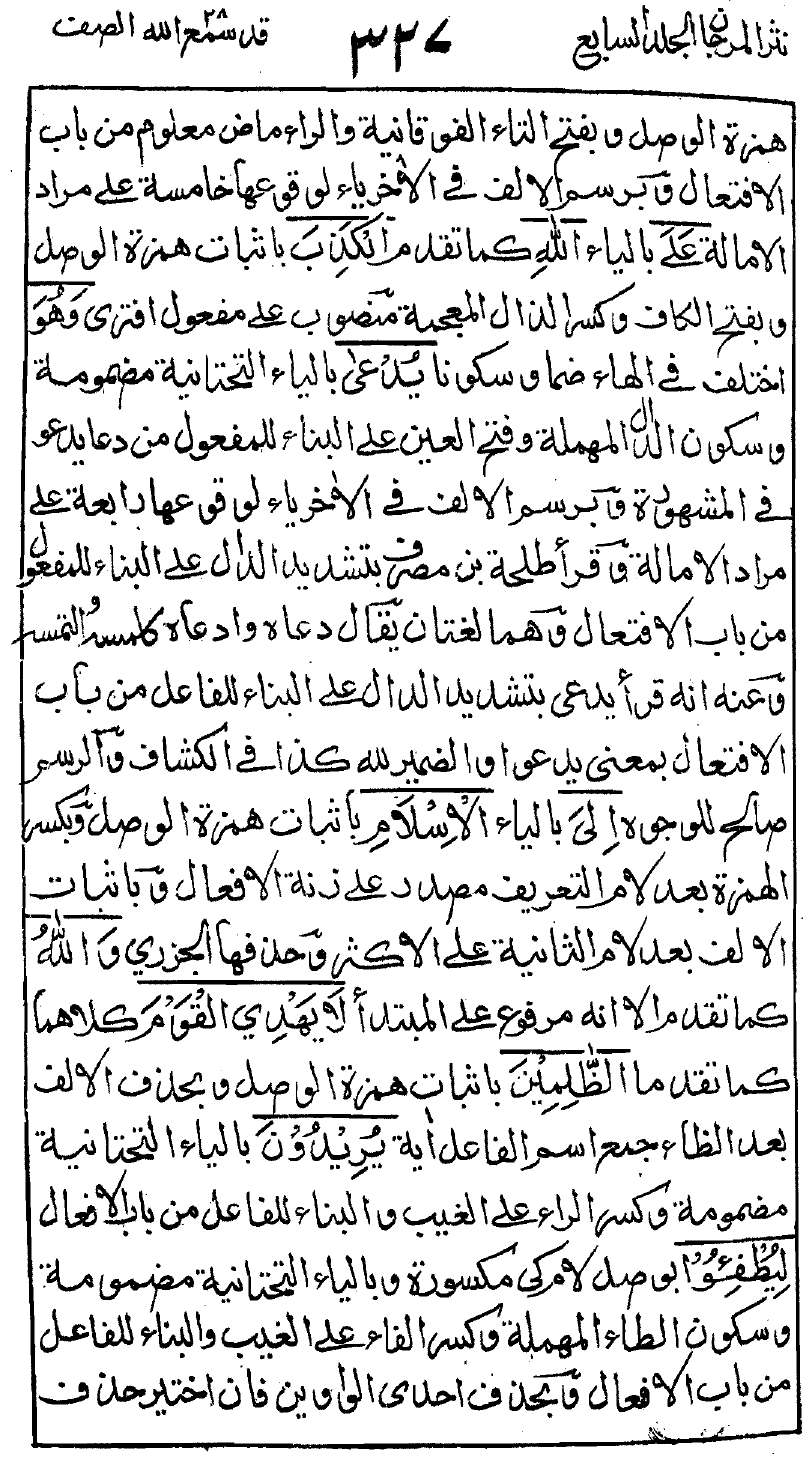 نثر المرجان الجلد السابع ٣٢٧ قد سمع الله ٢٨ الصف
همزة الوصل و بفتح التاء الفوقانية والراء ماض معلوم من باب
الافتعال و برسم الالف في الاخر ياء لوقوعها خامسة على مراد
الامالة عَلَى بالياء اللهِ كما تقدم الْكَذِبَ باثبات همزة الوصل
و بفتح الكاف وكسر الذال المعجمة منصوب على مفعول افترى وَهُوَ
اختلف في الهاء ضما وسكونا يُدْعٰى بالياء التحتانية مضمومة
وسكون الدال المهملة وفتح العين على البناء للمفعول من دعا يدعو
في المشهورة و برسم الالف في الاخر ياء لوقوعها رابعة على
مراد الامالة وقرأ طلحة بن مصرف بتشديد الدال على البناء للمفعول
من باب الافتعال وهما لغتان يقال دعاه وادعاه كلمسه والتمسه
وعنه انه قرأ يدعى بتشديد الدال على البناء للفاعل من باب
الافتعال بمعنى يدعوا والضمير لله كذا في الكشاف والرسم
صالح للوجوه اِلَى بالياء الْاِسْلَامِ باثبات همزة الوصل وبكسر
الهمزة بعد لام التعريف مصدر على زنة الافعال و باثبات
الالف بعد لام الثانية على الاكثر وحذفها الجزري وَاللهُ
كما تقدم الا انه مرفوع على المبتدأ لَا يَهْدِي الْقَوْمَ كلاهما
كما تقدما الظّٰلِمِيْنَ باثبات همزة الوصل و بحذف الالف
بعد الظاء جمع اسم الفاعل اية يُرِيْدُوْنَ بالياء التحتانية
مضمومة وكسر الراء على الغيب والبناء للفاعل من باب الافعال
لِيُطْفِـُٔوْا بوصل لام كي مكسورة وبالياء التحتانية مضمومة
وسكون الطاء المهملة وكسر الفاء على الغيب والبناء للفاعل
من باب الافعال و بحذف احدى الواوين فان اختير حذف